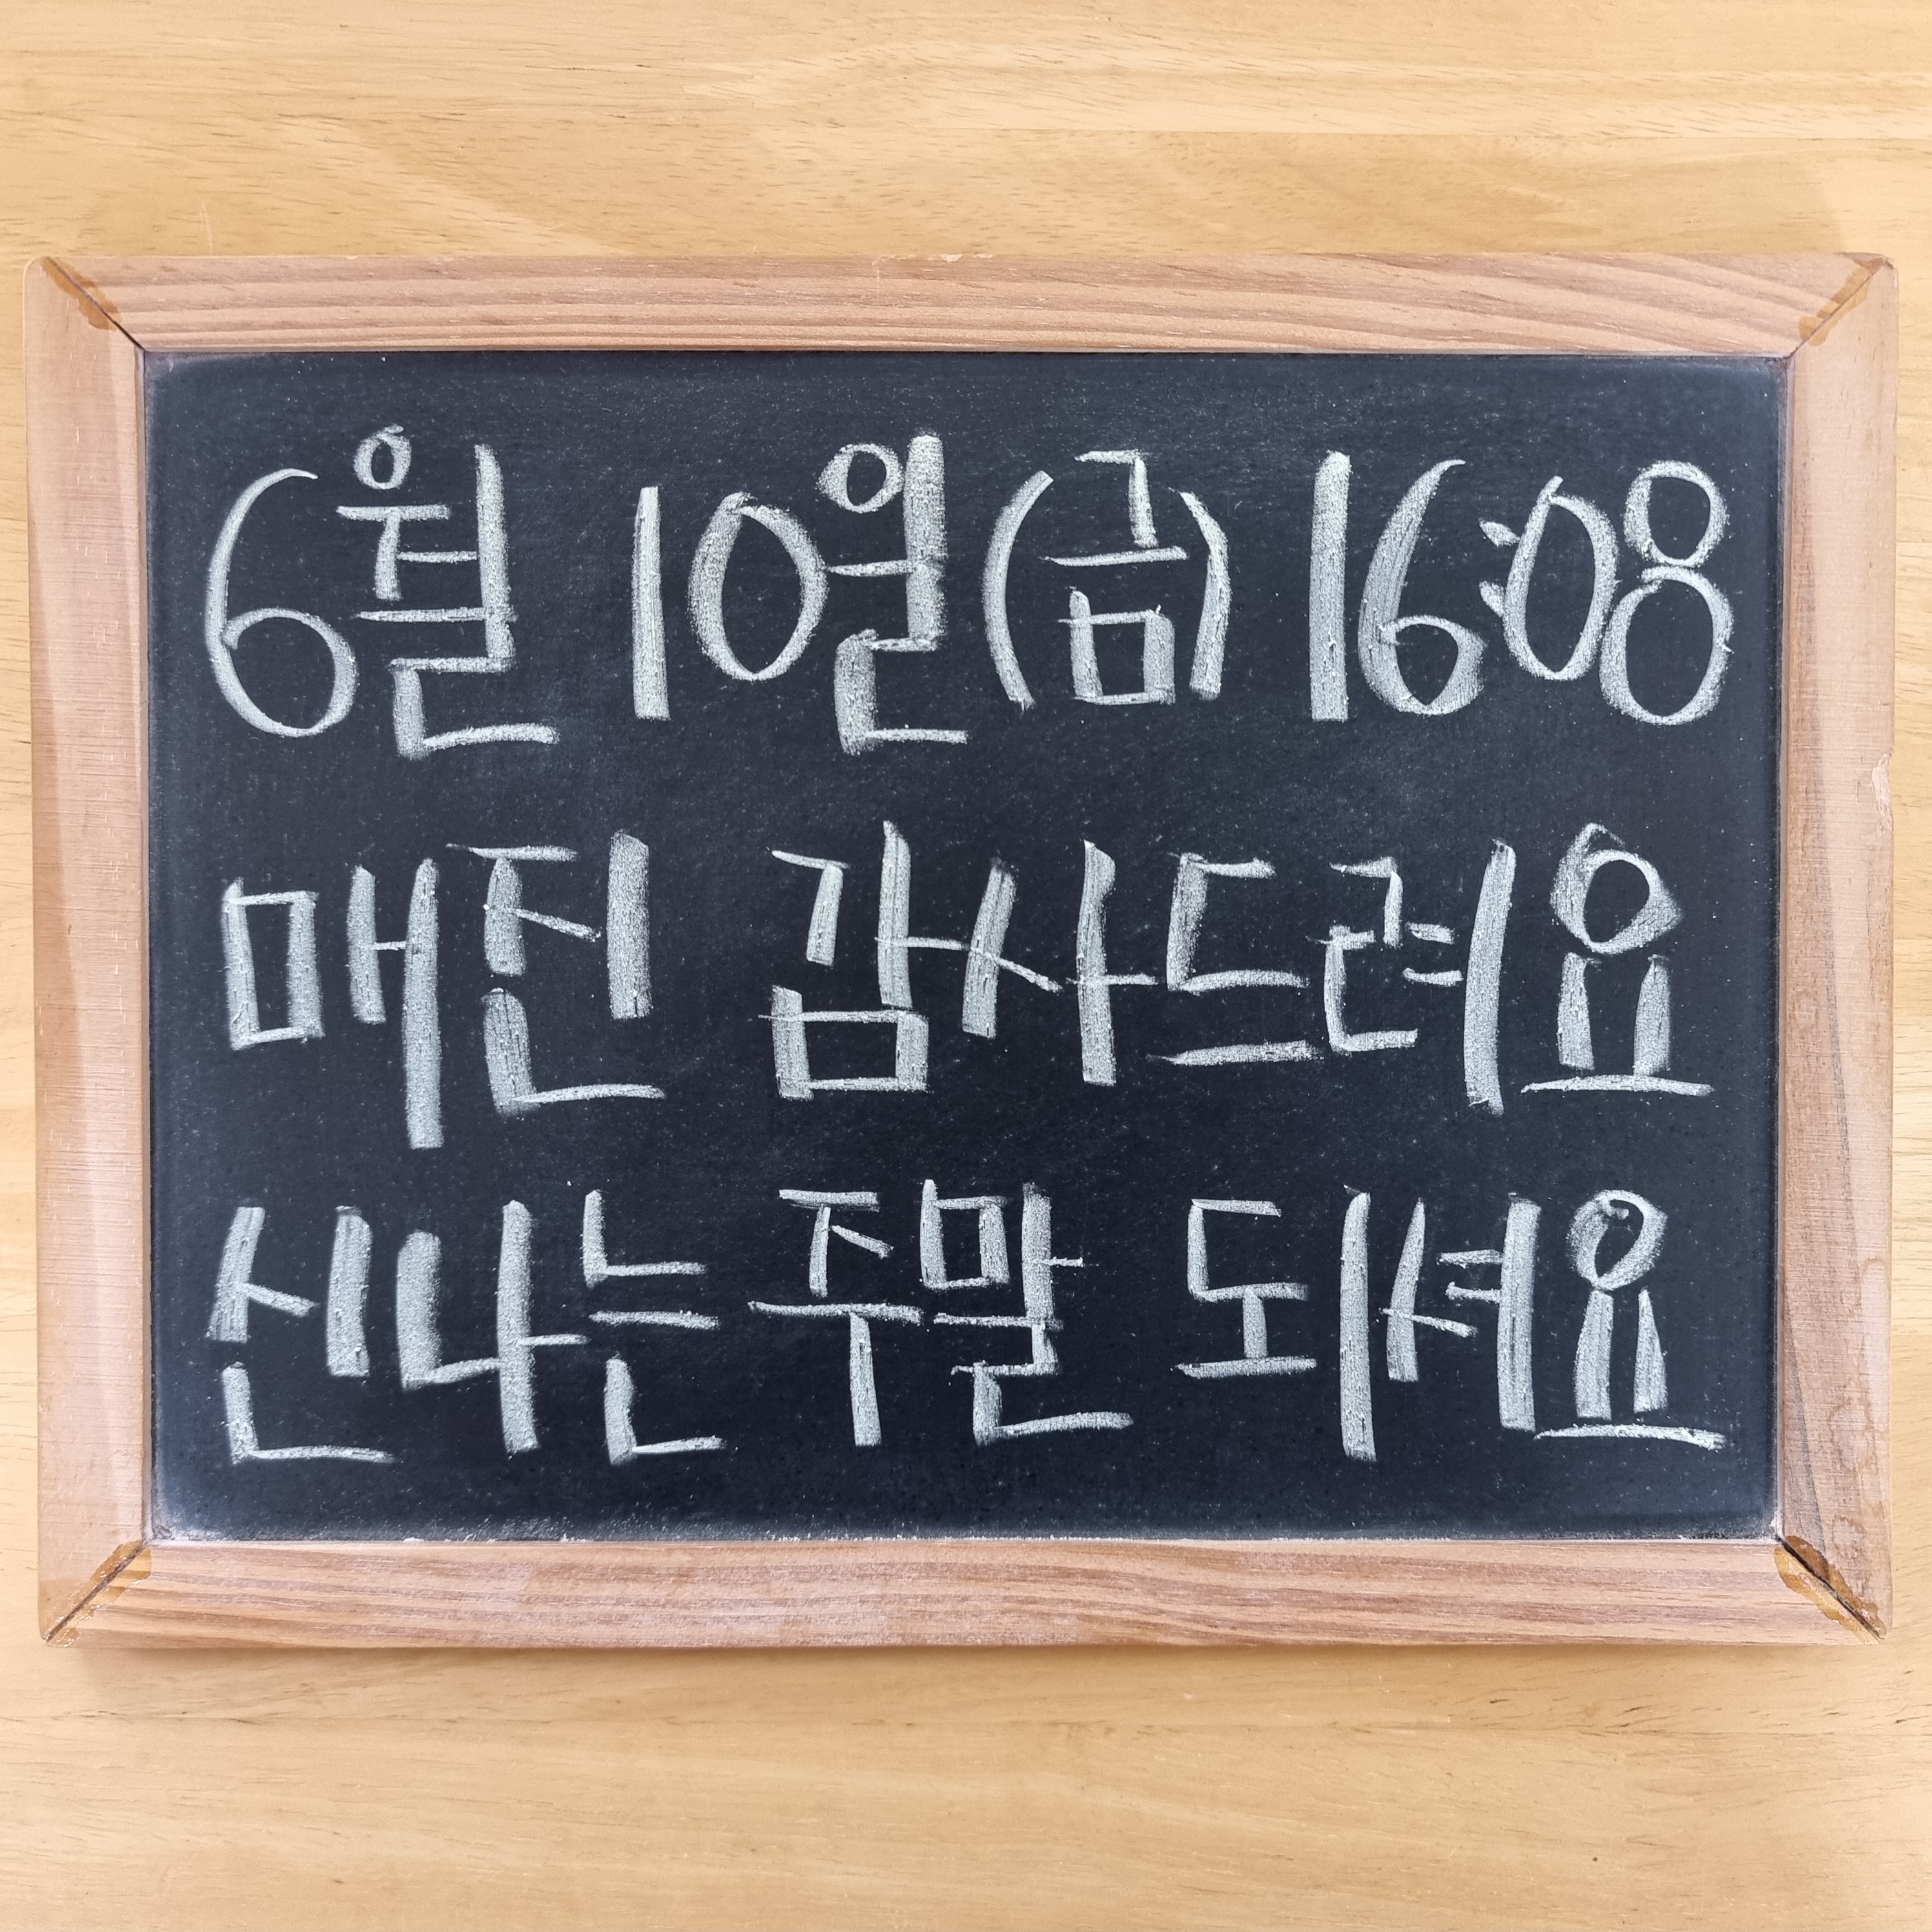 6월 10일(금) 16:08
매진 감사드려요
신나는 주말 되셔요